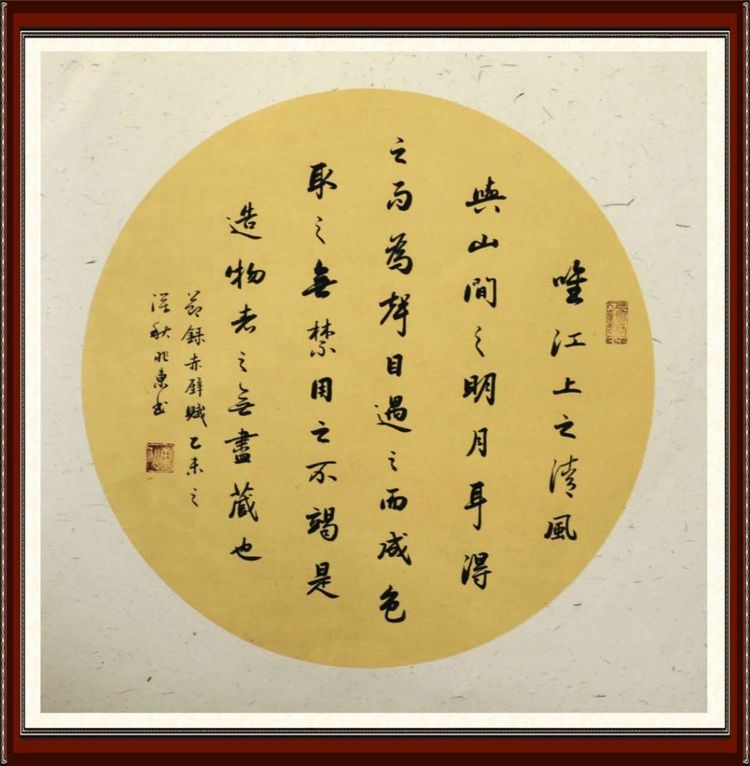 唯江上之清風
與山間之明月耳得
之而為聲目遇之而成色
取之無禁用之不竭是
造物者之無盡藏也
節錄赤壁賦乙未之
深秋兆東書